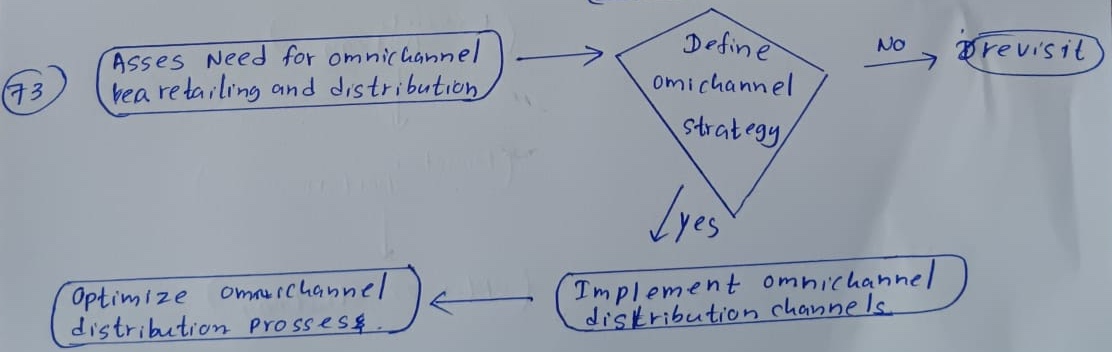 73
Asses Need for omnichannel
retailing and distribution
Define
omichannel
strategy
No
revisit
yes
Implement omnichannel
distribution channels
Optimize omnichannel
distribution prossess.